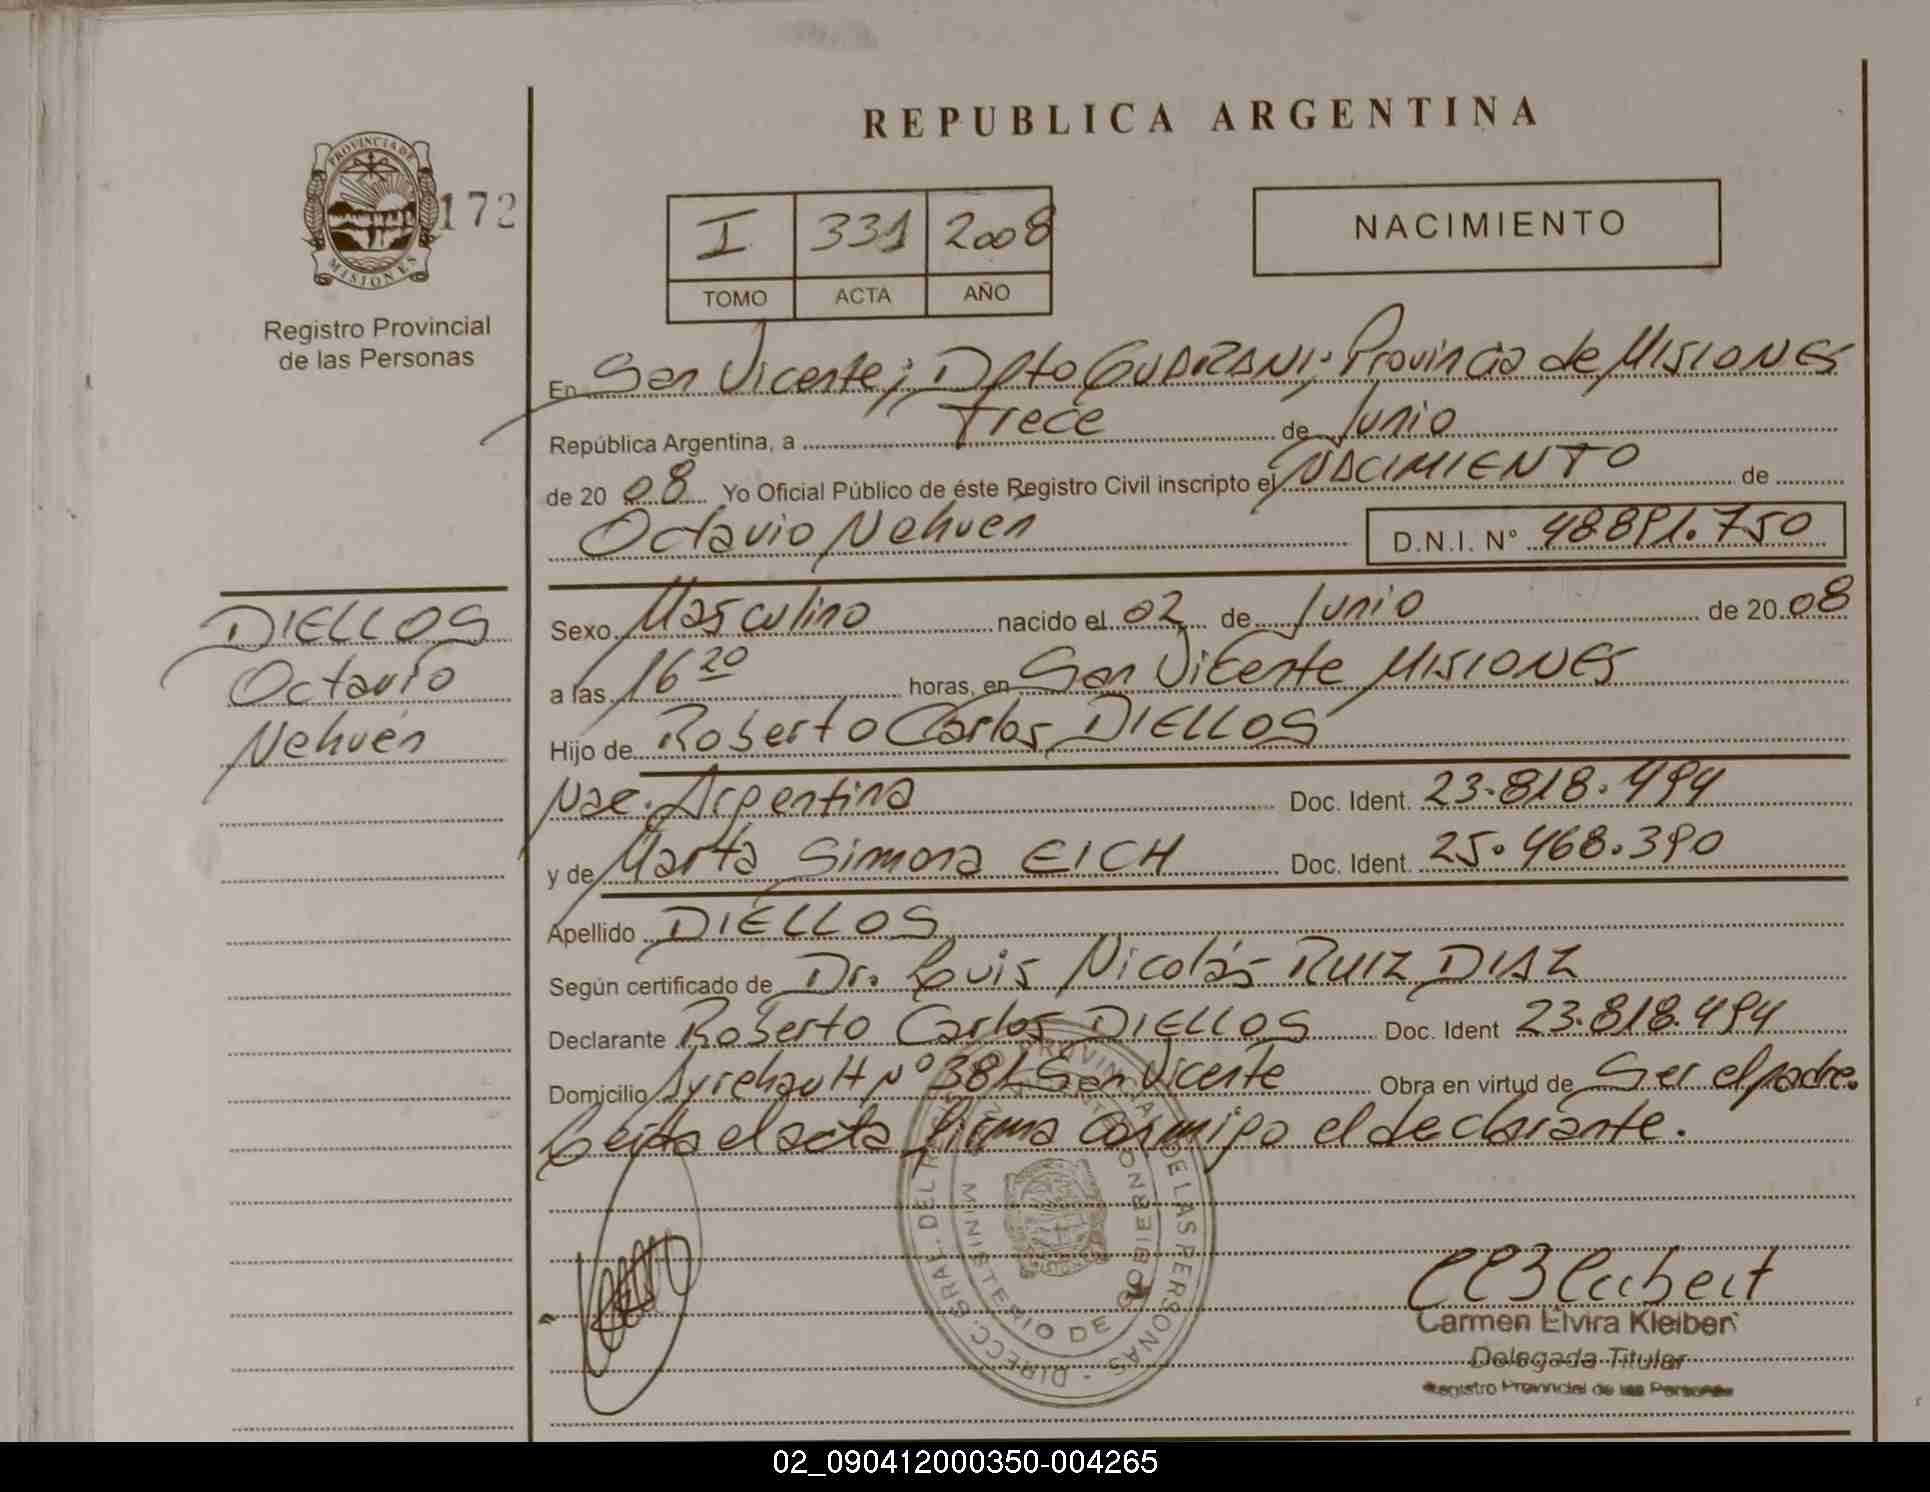 REPUBLICA ARGENTINA
PROVINCIA DE
MISIONES
172
Registro Provincial
de las Personas
I 331 2008
TOMO ACTA AÑO
NACIMIENTO
En San Vicente; Dpto GUARANI; Provincia de MISIONES
República Argentina, a trece de Junio
de 20 08 Yo Oficial Público de éste Registro Civil inscripto el NACIMIENTO de
Octavio Nehuén D.N.I. Nº 48891.750
DIELLOS
Octavio
Nehuén
Sexo Masculino nacido el 02 de Junio de 20 08
a las 16 20 horas, en San Vicente MISIONES
Hijo de Roberto Carlos DIELLOS
Nac. Argentina Doc. Ident. 23.818.494
y de Marta Simona EICH Doc. Ident. 25.468.390
Apellido DIELLOS
Según certificado de Dr. Louis Nicolás RUIZ DIAZ
Declarante Roberto Carlos DIELLOS Doc. Ident 23.818.494
Domicilio Nº 381 San Vicente Obra en virtud de Ser el padre.
Leida el acta firma conmigo el declarante.
MINISTERIO DE GOBIERNO
Carmen Elvira Kleibert
Delegada Titular
Registro Provincial de las Personas
02_090412000350-004265